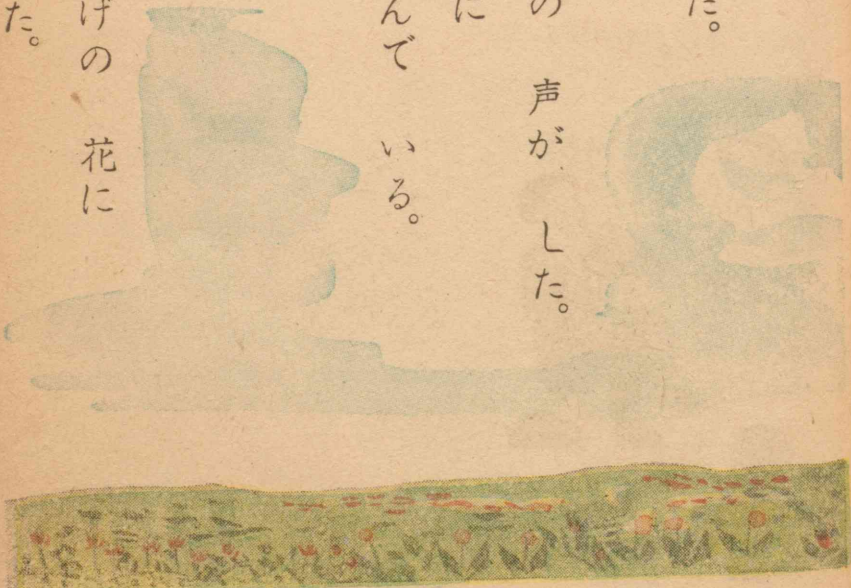 た。
の 声が した。
に
んで いる。
げの 花に
た。